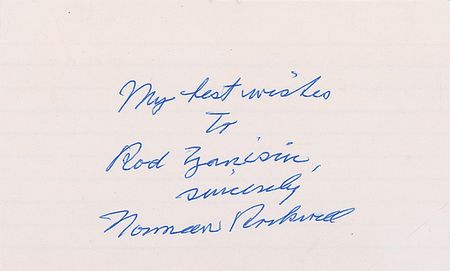 My best wishes
To
Rod
sincerely
Norman Rockwell